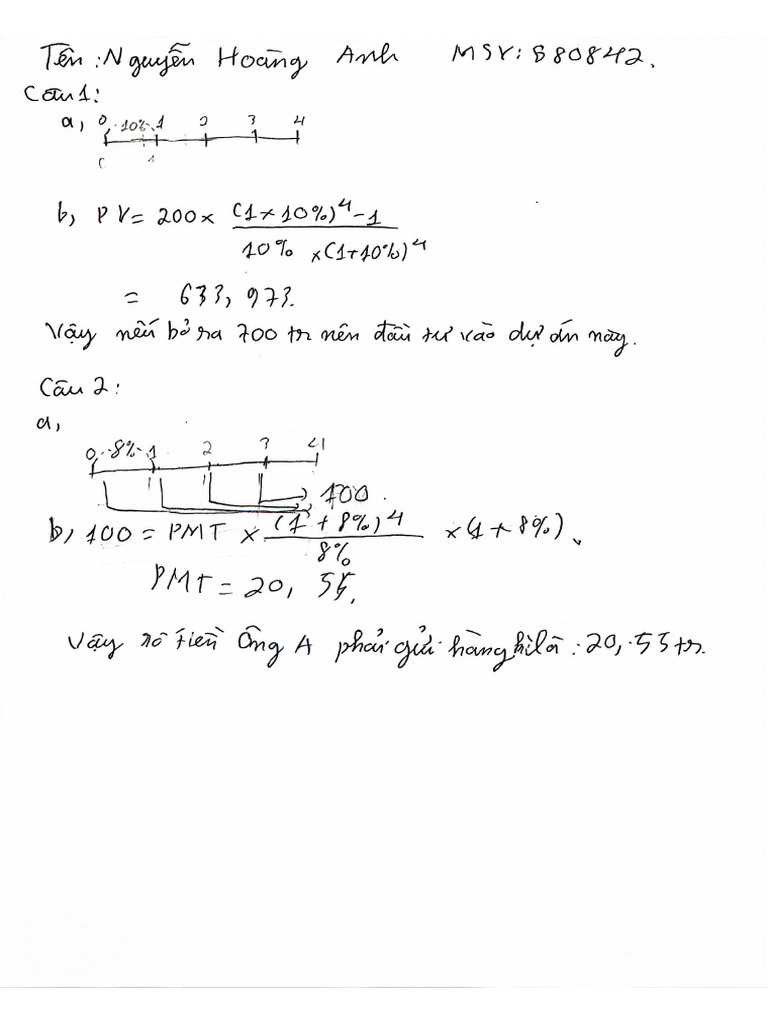 Tên: Nguyễn Hoàng Anh MSV: B80842.
Câu 1:
a, 0 10% 1 2 3 4
b, PV = 200 × ((1 + 10%)^4 - 1) / (10% × (1+10%)^4)
= 633, 973.
Vậy nếu bỏ ra 700 tr nên đầu tư vào dự án này.
Câu 2:
a,
0 8% 1 2 3 4
100
b, 100 = PMT × (1 + 8%)^4 / 8% × (1 + 8%)
PMT = 20, 55.
Vậy số tiền Ông A phải gửi hàng là: 20, 55 tr.